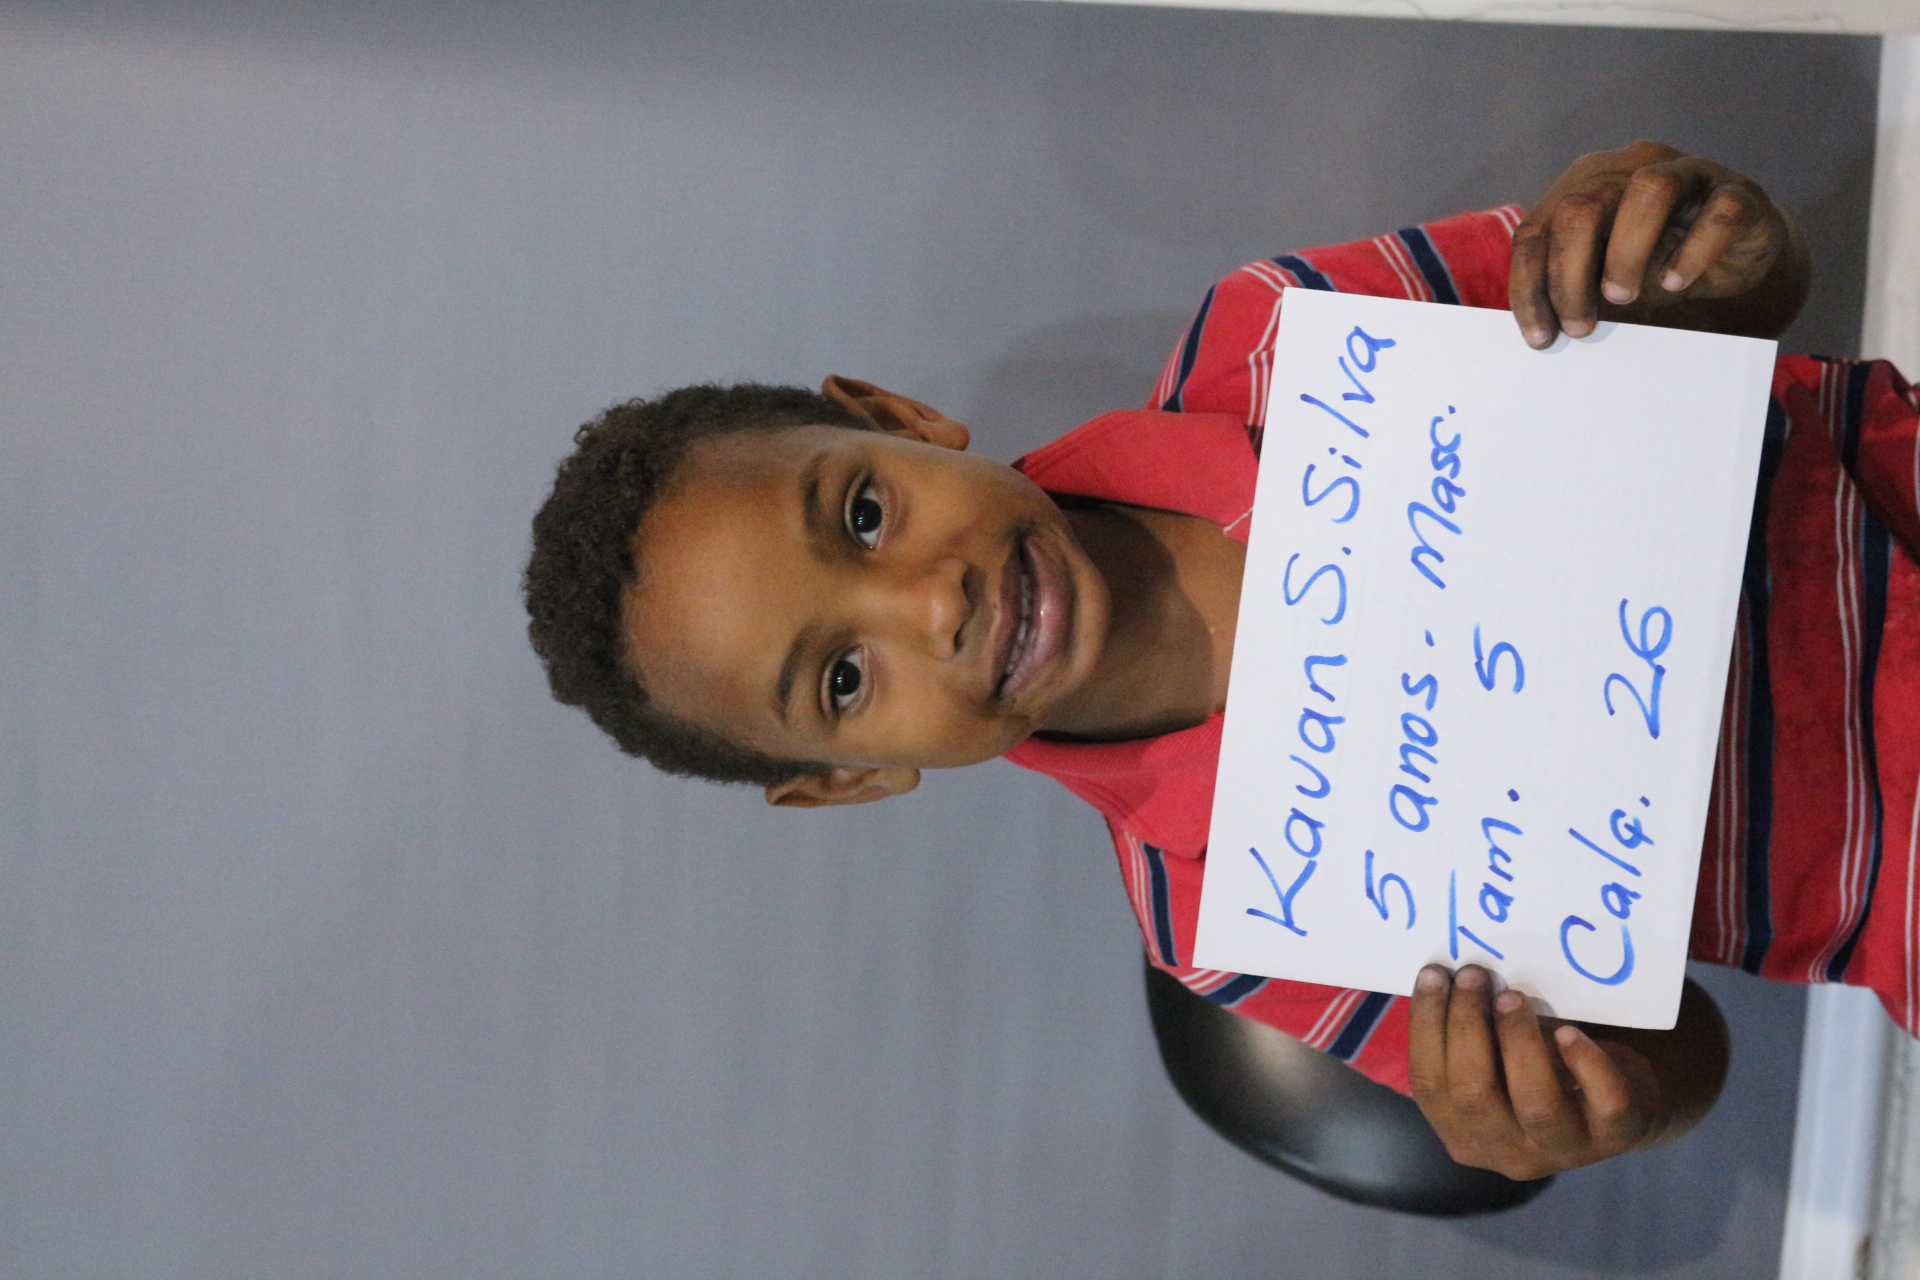 Kauan S. Silva
5 anos. Masc.
Tam. 5
Calç. 26